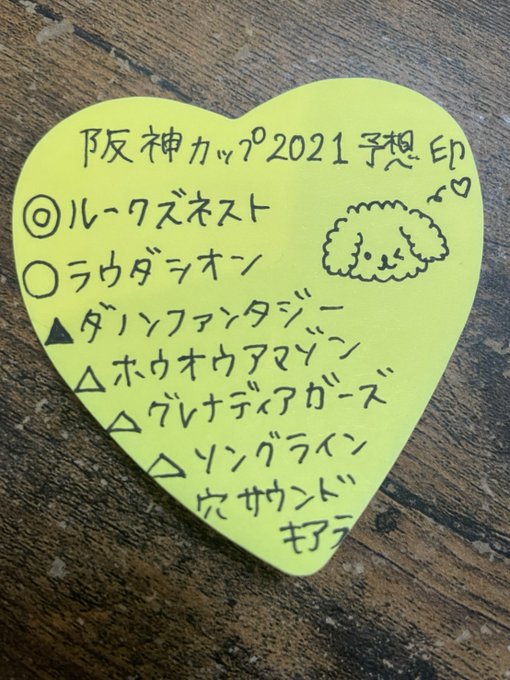 阪神カップ2021予想印
◎ルークズネスト
○ラウダシオン
▲ダノンファンタジー
△ホウオウアマゾン
△グレナディアガーズ
△ソングライン
穴サウンド
キアラ